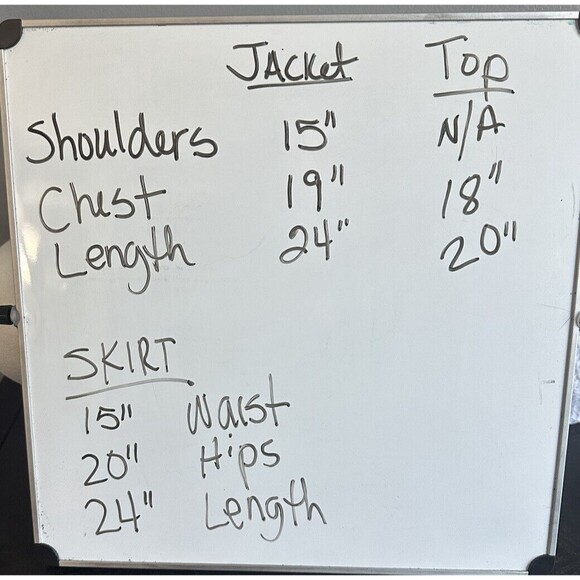 Jacket Top
Shoulders 15" N/A
Chest 19" 18"
Length 24" 20"
SKIRT
15" Waist
20" Hips
24" Length